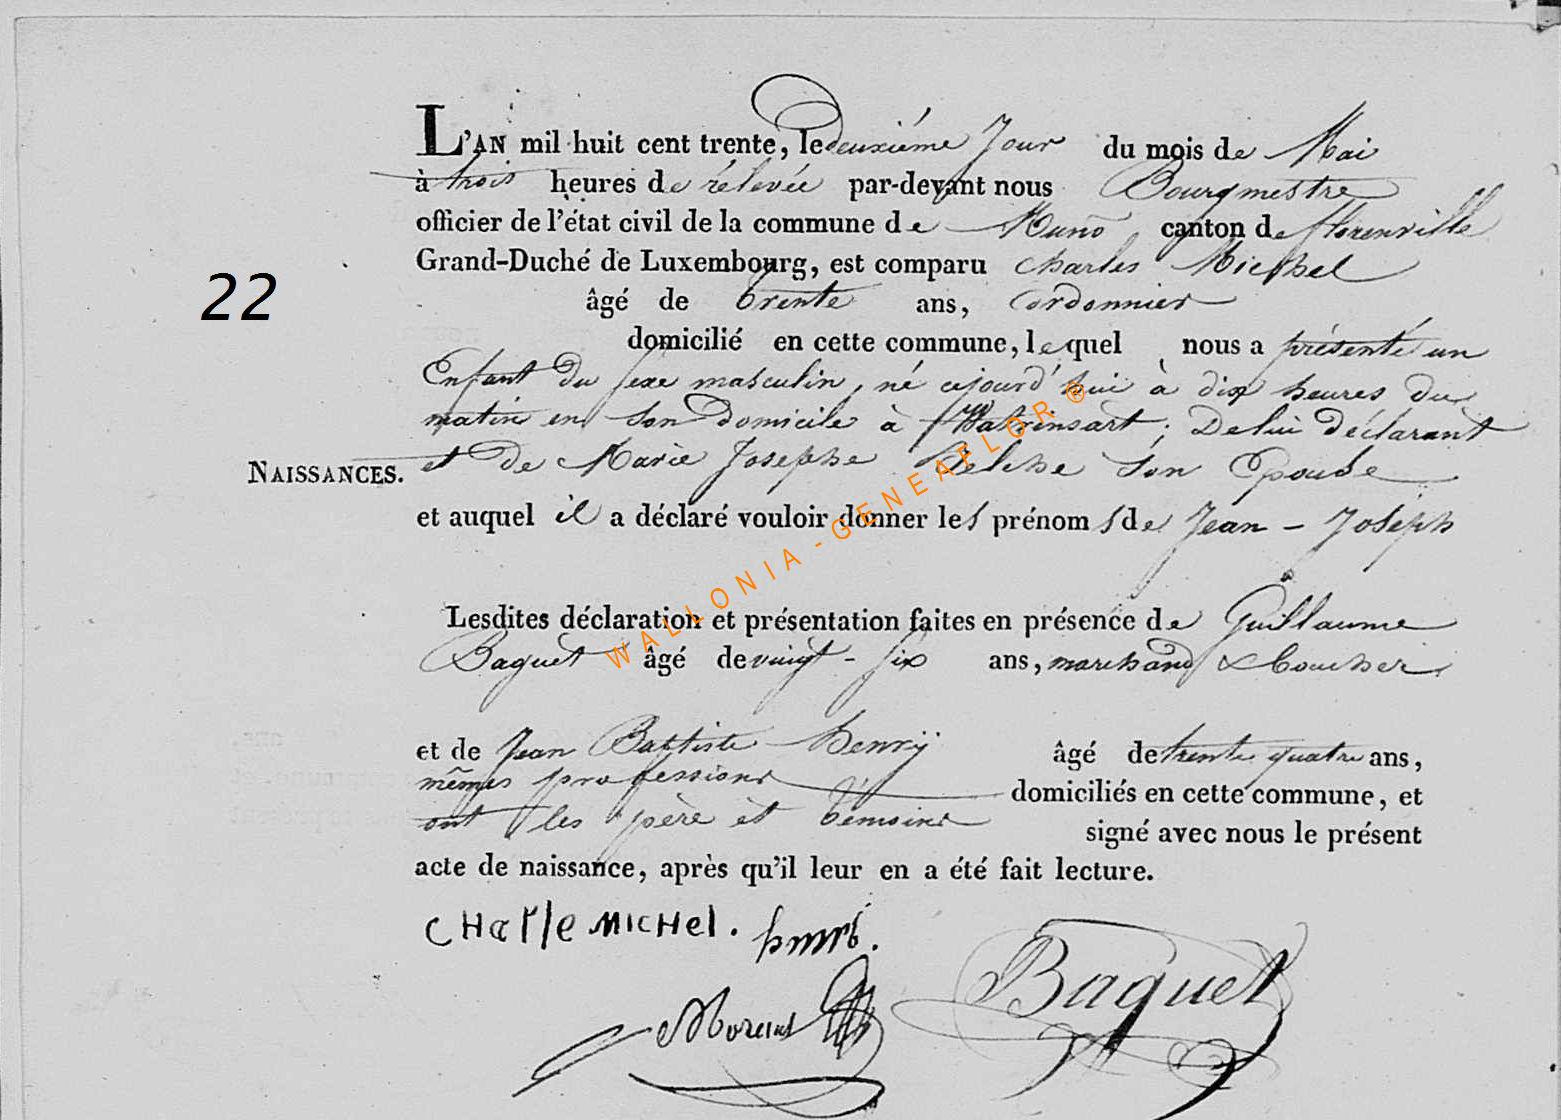 L'AN mil huit cent trente, le deuxiéme Jour du mois de Mai
à trois heures de rélevée par-devant nous Bourgmestre
officier de l'état civil de la commune de Muno canton de florenville
Grand-Duché de Luxembourg, est comparu Charles Michel
22
âgé de trente ans, Cordonnier
domicilié en cette commune, lequel nous a présenté un
Enfant du sexe masculin, né cejourd'hui à dix heures du
matin en son Domicile à Watrinsart; De lui déclarant
NAISSANCES. et de Marie Josephe son Epouse
et auquel il a déclaré vouloir donner les prénoms de Jean - Joseph
WALLONIA - GENEAFLOR ®
Lesdites déclaration et présentation faites en présence de Guillaume
Baquet âgé de vingt - six ans, marchand & boucher
et de Jean Battiste henrÿ âgé de trente quatre ans,
mêmes professions domiciliés en cette commune, et
ont les père et témoins signé avec nous le présent
acte de naissance, après qu'il leur en a été fait lecture.
CHarle MICHel.
Baquet